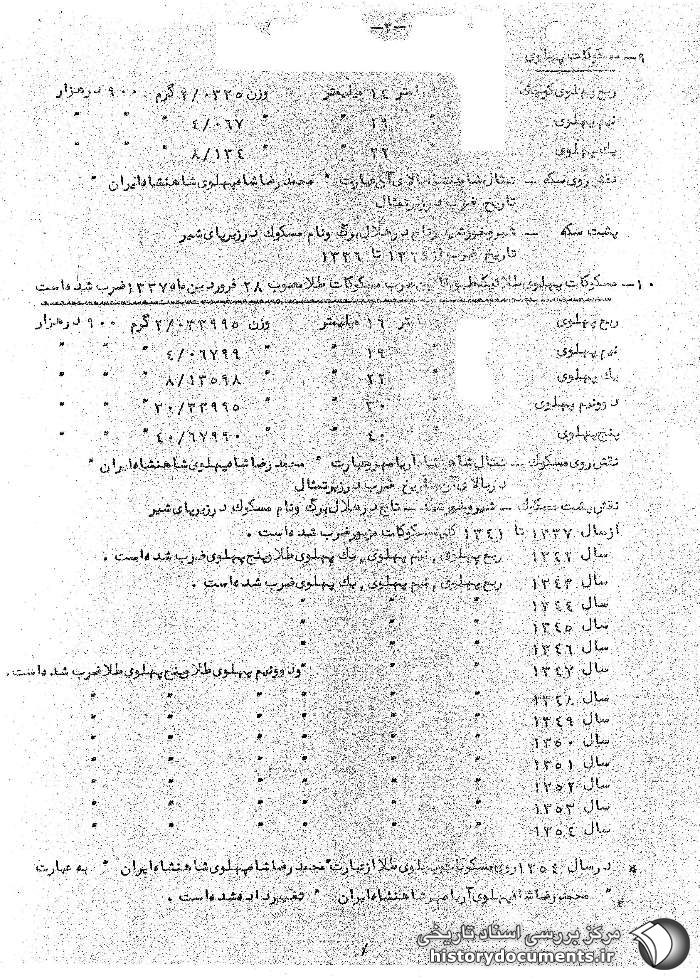 -۳-
۹- مسکوکات پهلوی
ربع پهلوی کوچک ۱٤ میلیمتر وزن ۲/۰۳۳۵ گرم ۹۰۰ در هزار
نیم پهلوی " ۱۹ " " ٤/۰۶۷ " " "
یک پهلوی " ۲۲ " " ۸/۱۳٤ " " "
نقش روی سکه – تمثال بالای آن عبارت " محمد رضا شاه پهلوی شاهنشاه ایران "
تاریخ ضرب در زیر تمثال
پشت سکه – شیر و خورشید در هلال برگ و نام مسکوک در زیر پای شیر
تاریخ ضرب از تا ۱۳۳۶
۱۰- مسکوکات پهلوی طلا که طبق ضرب مسکوکات طلا مصوب ۲۸ فروردین ماه ۱۳۳۷ ضرب شده است
ربع پهلوی ۱۶ میلیمتر وزن ۲/۰۳۳۹۹۵ گرم ۹۰۰ در هزار
نیم پهلوی " ۱۹ " " ٤/۰۶۷۹۹ " " "
یک پهلوی " ۲۲ " " ۸/۱۳۵۹۸ " " "
دو و نیم پهلوی ۳۰ " " ۲۰/۳۳۹۹۵ " " "
پنج پهلوی " ٤۰ " " ٤۰/۶۷۹۹۰ " " "
نقش روی مسکوک – تمثال شاهنشاه آریامهر عبارت " محمد رضا شاه پهلوی شاهنشاه ایران "
در بالای آن و تاریخ ضرب در زیر تمثال
نقش پشت مسکوک – شیر و خورشید – تاج در هلال برگ و نام مسکوک در زیر پای شیر
از سال ۱۳۳۷ تا ۱۳٤۱ کلیه مسکوکات مزبور ضرب شده است .
سال ۱۳٤۲ ربع پهلوی , نیم پهلوی , یک پهلوی طلا و پنج پهلوی ضرب شده است .
سال ۱۳٤۳ ربع پهلوی , نیم پهلوی , یک پهلوی ضرب شده است .
سال ۱۳٤٤ " " "
سال ۱۳٤۵ " " "
سال ۱۳٤۶ " " "
سال ۱۳٤۷ " " " و دو و نیم پهلوی طلا و پنج پهلوی طلا ضرب شده است .
سال ۱۳٤۸ " " " " " "
سال ۱۳٤۹ " " " " " "
سال ۱۳۵۰ " " " " " "
سال ۱۳۵۱ " " " " " "
سال ۱۳۵۲ " " " " " "
سال ۱۳۵۳ " " " " " "
سال ۱۳۵٤ " " " " " "
* در سال ۱۳۵٤ روی مسکوکات پهلوی طلا از عبارت " محمد رضا شاه پهلوی شاهنشاه ایران " به عبارت
" محمد رضا شاه پهلوی آریامهر شاهنشاه ایران " تغییر داده شده است .
مرکز بررسی اسناد تاریخی
historydocuments.ir